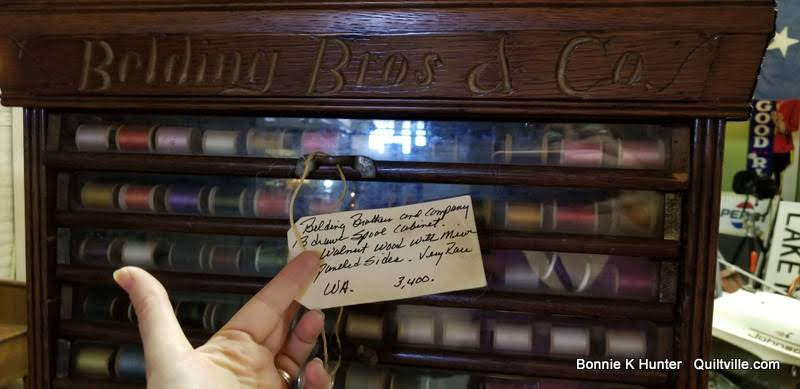 Belding Bros & Co.
Belding Brothers and Company
13 drawer Spool Cabinet.
Walnut Wood with Mirror
Paneled Sides. Very Rare
WA. 3,400.
GOOD
PEPSI
LAKE
Johnson
Bonnie K Hunter Quiltville.com